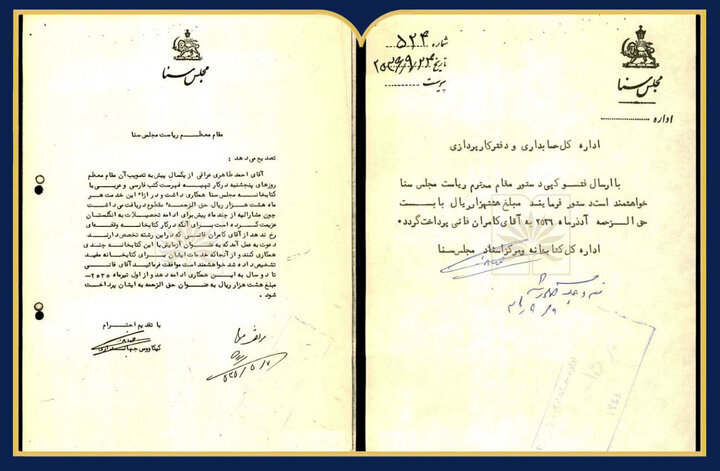 مجلس سنا
مقام معظم ریاست مجلس سنا
تصدیع میدهد:
آقای احمد طاهری عراقی از یکسال پیش به تصویب آن مقام معظم
روزهای پنجشنبه در کار تهیه فهرست کتب فارسی و عربی با
کتابخانه مجلس سنا همکاری داشت و در ازاء این خدمت هر
ماه هشت هزار ریال حق الزحمه دریافت می داشت
چون مشارالیه از چند ماه پیش برای ادامه تحصیلات به انگلستان
عزیمت کرده است برای آنکه در کار کتابخانه وقفه‌ای
رخ ندهد از آقای کامران فانی که در این رشته تخصص دارند
دعوت به عمل آمد که به عنوان آزمایش با این کتابخانه چندی
همکاری کنند و از آنجا که خدمات ایشان برای کتابخانه مفید
تشخیص داده شد خواهشمند است موافقت فرمائید آقای فانی
تا دو سال به این همکاری ادامه دهد و از اول تیرماه ۲۵۳۵
مبلغ هشت هزار ریال به عنوان حق الزحمه به ایشان پرداخت
شود.
با تقدیم احترام
کیکاووس جهانداری
مجلس سنا
شماره ۵۲۴
تاریخ ۲۵۳۶/۹/۲۴
پیوست
اداره
اداره کل حسابداری و دفتر کارپردازی
با ارسال فتوکپی دستور مقام محترم ریاست مجلس سنا
خواهشمند است دستور فرمایند مبلغ هشتهزار ریال بابت
حق الزحمه آذرماه ۲۵۳۶ به آقای کامران فانی پرداخت گردد.
اداره کل کتابخانه و مرکز اسناد مجلس سنا